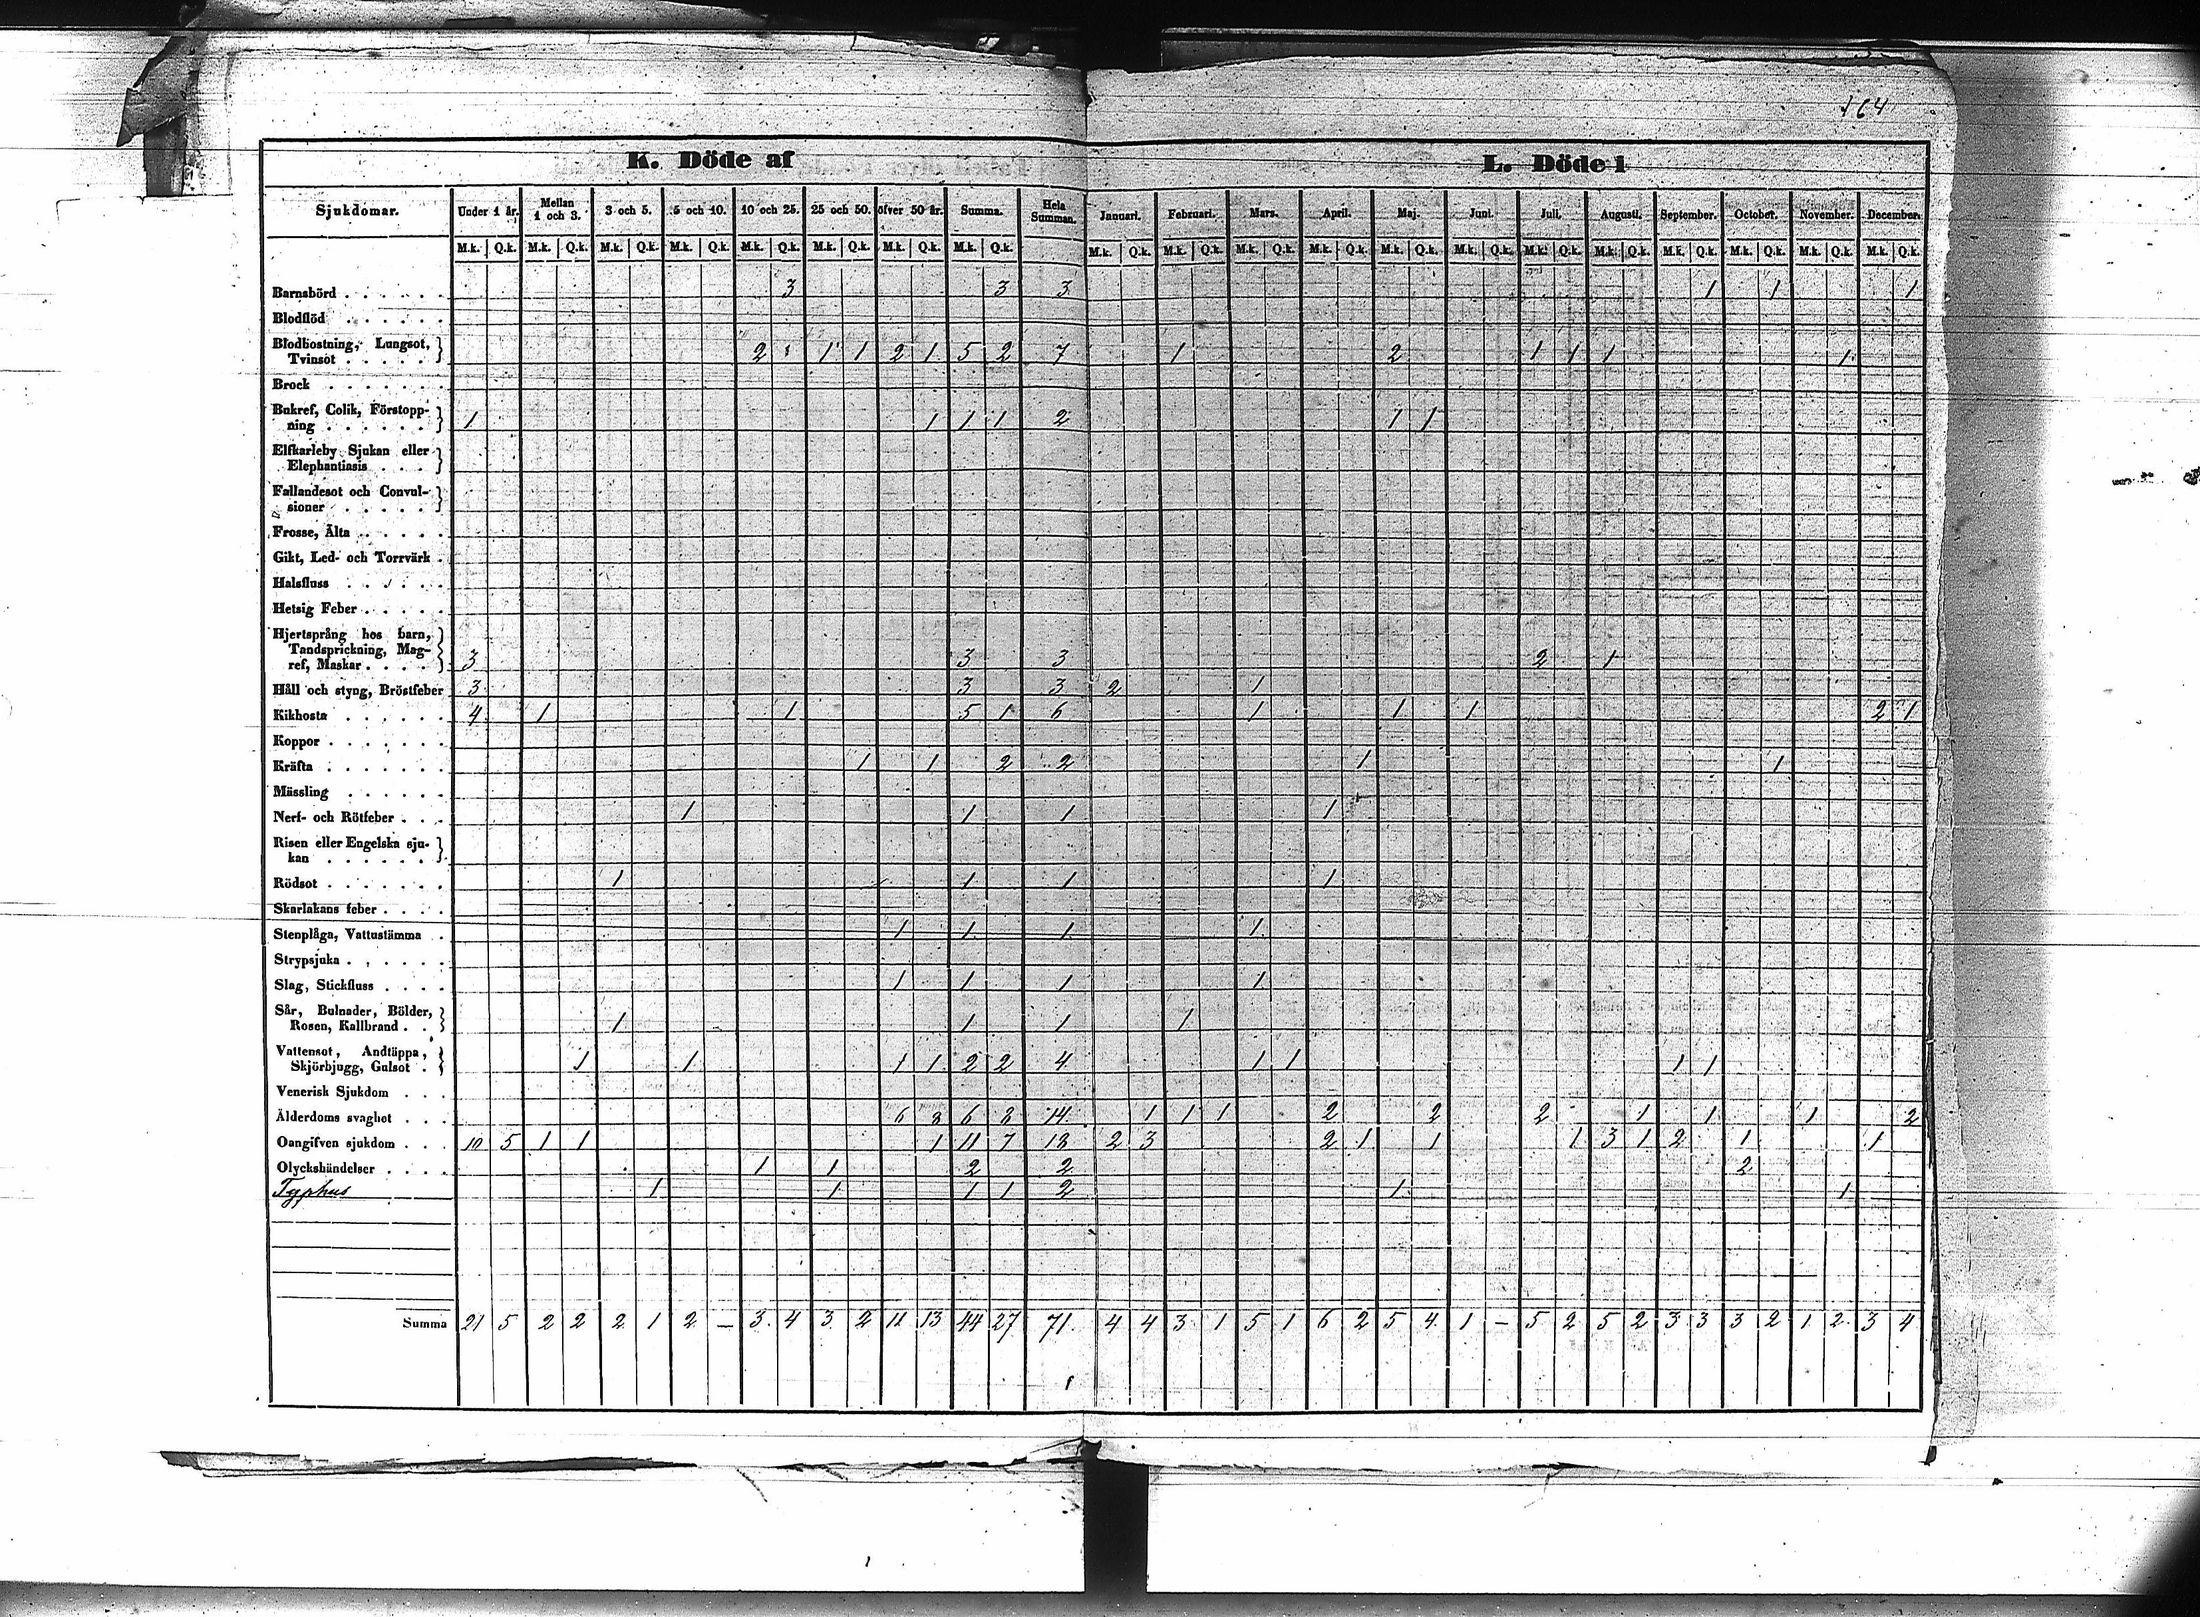 164
K. Döde af
L. Döde i
Sjukdomar. Under 1 år. Mellan 1 och 3. 3 och 5. 5 och 10. 10 och 25. 25 och 50. öfver 50 år. Summa. Hela Summan. Januari. Februari. Mars. April. Maj. Juni. Juli. Augusti. September. October. November. December.
M.k. Q.k. M.k. Q.k. M.k. Q.k. M.k. Q.k. M.k. Q.k. M.k. Q.k. M.k. Q.k. M.k. Q.k. M.k. Q.k. M.k. Q.k. M.k. Q.k. M.k. Q.k. M.k. Q.k. M.k. Q.k. M.k. Q.k. M.k. Q.k. M.k. Q.k. M.k. Q.k. M.k. Q.k. M.k. Q.k.
Barnsbörd 3 3 3 1 1 1
Blodflöd
Blodhostning, Lungsot,
Tvinsot 2 1 1 2 1 5 2 7 1 2 1 1 1 1
Brock
Bukref, Colik, Förstopp-
ning 1 1 1 1 2 1 1
Elfkarleby Sjukan eller
Elephantiasis
Fallandesot och Convul-
sioner
Frosse, Älta
Gikt, Led- och Torrvärk
Halsfluss
Hetsig Feber
Hjertsprång hos barn,
Tandsprickning, Mag-
ref, Maskar 3 3 3 2 1
Håll och styng, Bröstfeber 3 3 3 2 1
Kikhosta 4 1 1 5 1 6 1 1 1 2 1
Koppor
Kräfta 1 1 2 2 1 1
Mässling
Nerf- och Rötfeber 1 1 1 1
Risen eller Engelska sju-
kan
Rödsot 1 1 1 1
Skarlakans feber
Stenplåga, Vattustämma 1 1 1 1
Strypsjuka
Slag, Stickfluss 1 1 1 1
Sår, Bulnader, Bölder,
Rosen, Kallbrand 1 1 1 1
Vattensot, Andtäppa,
Skjörbjugg, Gulsot 1 1 1 1 2 2 4 1 1 1 1
Venerisk Sjukdom
Ålderdoms svaghet 6 8 6 8 14 1 1 1 2 2 2 1 1 1 2
Oangifven sjukdom 10 5 1 1 1 11 7 18 2 3 2 1 1 1 3 1 2 1 1
Olyckshändelser 1 1 2 2 2
Typhus 1 1 1 1 2 1 1
Summa 21 5 2 2 2 1 2 – 3 4 3 2 11 13 44 27 71 4 4 3 1 5 1 6 2 5 4 1 – 5 2 5 2 3 3 3 2 1 2 3 4